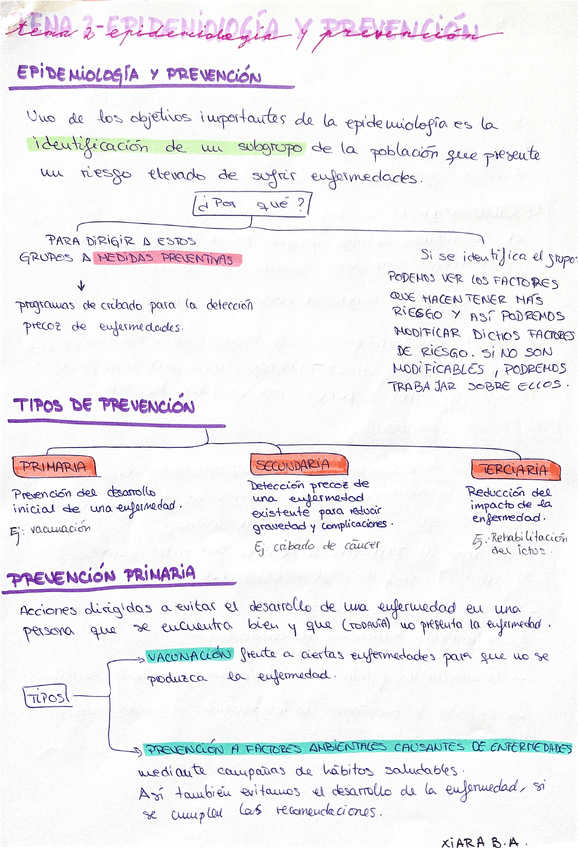 TEMA 2-EPIDEMIOLOGÍA Y PREVENCIÓN
tema 2-epidemiología y prevención
EPIDEMIOLOGÍA Y PREVENCIÓN
Uno de los objetivos importantes de la epidemiología es la
identificación de un subgrupo de la población que presente
un riesgo elevado de sufrir enfermedades.
¿Por qué?
PARA DIRIGIR A ESTOS
GRUPOS A MEDIDAS PREVENTIVAS
programas de cribado para la detección
precoz de enfermedades.
Si se identifica el grupo:
PODEMOS VER LOS FACTORES
QUE HACEN TENER MÁS
RIESGO Y ASÍ PODREMOS
MODIFICAR DICHOS FACTORES
DE RIESGO. SI NO SON
MODIFICABLES, PODREMOS
TRABAJAR SOBRE ELLOS.
TIPOS DE PREVENCIÓN
PRIMARIA
Prevención del desarrollo
inicial de una enfermedad.
Ej: vacunación
SECUNDARIA
Detección precoz de
una enfermedad
existente para reducir
gravedad y complicaciones.
Ej. cribado de cáncer
TERCIARIA
Reducción del
impacto de la
enfermedad.
Ej: Rehabilitación
del ictus.
PREVENCIÓN PRIMARIA
Acciones dirigidas a evitar el desarrollo de una enfermedad en una
persona que se encuentra bien y que (TODAVÍA) no presenta la enfermedad.
TIPOS
VACUNACIÓN frente a ciertas enfermedades para que no se
produzca la enfermedad.
PREVENCIÓN A FACTORES AMBIENTALES CAUSANTES DE ENFERMEDADES
mediante campañas de hábitos saludables.
Así también evitamos el desarrollo de la enfermedad, si
se cumplen las recomendaciones.
XIARA B.A.